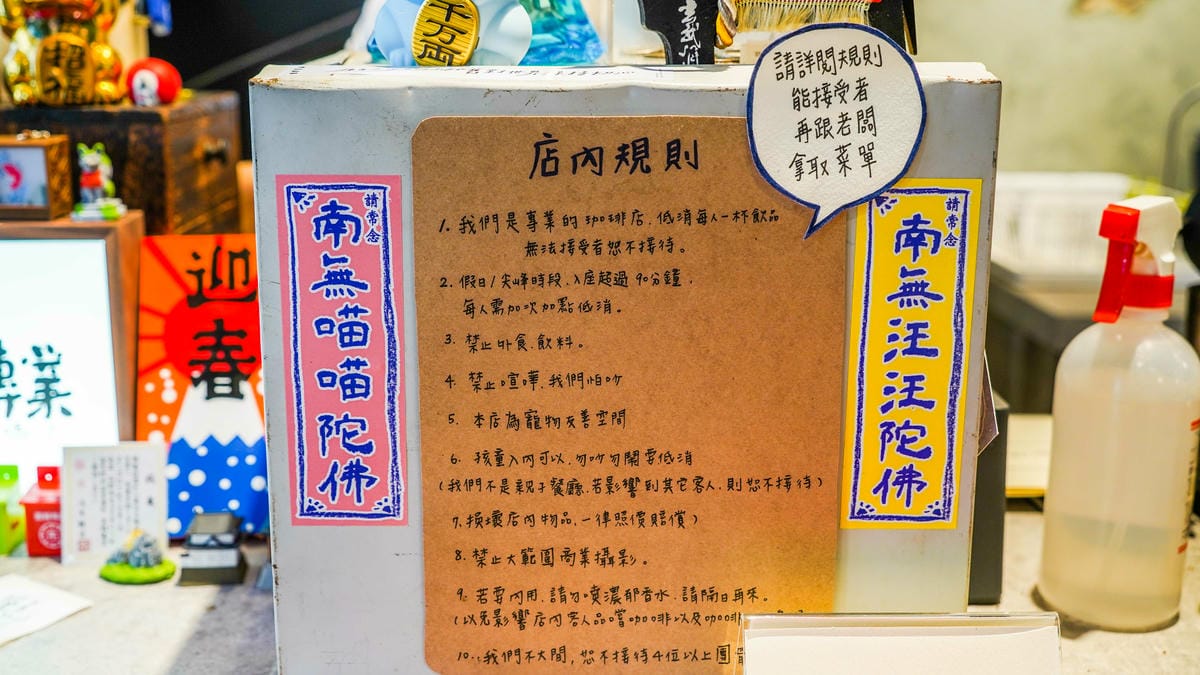 千万両
請詳閱規則
能接受者
再跟老闆
拿取菜單
店內規則
1. 我們是專業的咖啡店、低消每人一杯飲品
無法接受者恕不接待。
2. 假日/尖峰時段、入座超過90分鐘，
每人需加次加點低消。
3. 禁止外食、飲料。
4. 禁止喧嘩、我們怕吵
5. 本店為寵物友善空間
6. 孩童入內可以、勿吵勿鬧要低消
(我們不是親子餐廳、若影響到其它客人、則恕不接待)
7. 損壞店內物品、一律照價賠償)
8. 禁止大範圍商業攝影。
9. 若要內用、請勿噴濃郁香水、請隔日再來。
(以免影響店內客人品嚐咖啡以及咖啡
10. 我們不大間，恕不接待4位以上團
請常念
南無喵喵陀佛
請常念
南無汪汪陀佛
迎春
業